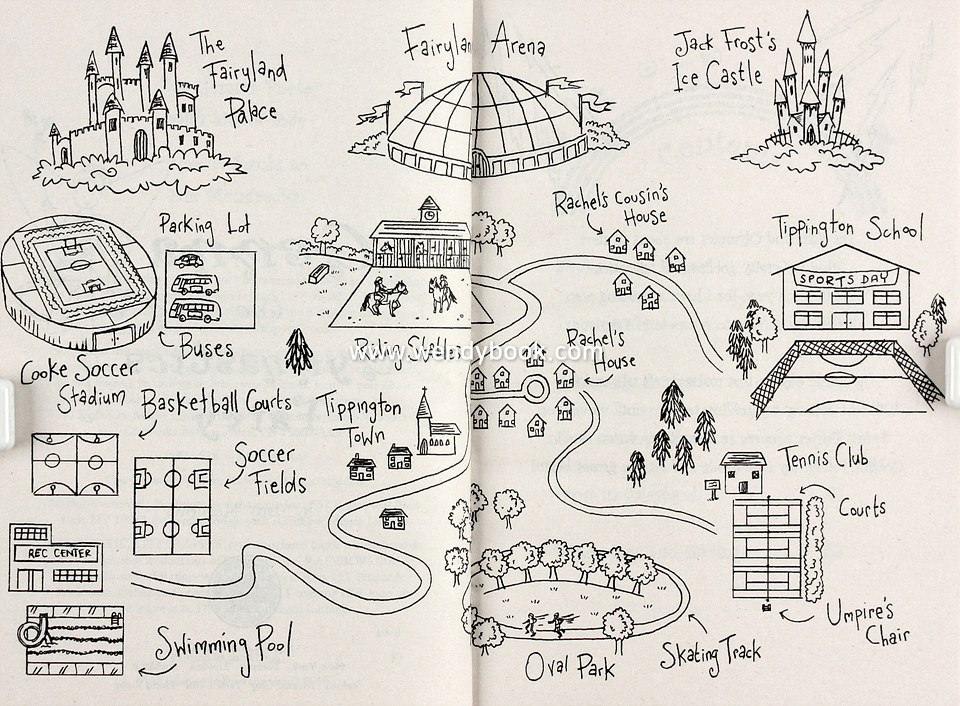 The
Fairyland
Palace
Fairyland Arena
Jack Frost's
Ice Castle
Rachel's Cousin's
House
Parking Lot
Tippington School
SPORTS DAY
Buses
Riding Stables
www.wendybook.com
Rachel's
House
Cooke Soccer
Stadium
Basketball Courts
Tippington
Town
Soccer
Fields
Tennis Club
Courts
REC CENTER
Umpire's
Chair
Swimming Pool
Oval Park
Skating Track